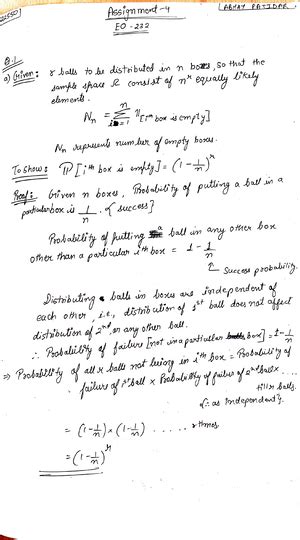 Assignment-4
ABHAY PATIDAR
EO-232
Q.1
a) Given: r balls to be distributed in n boxes, so that the
sample space Ω consist of n^r equally likely
elements.
N_n = Σ_{i=1}^{n} 𝟙[i^th box is empty]
N_n represents number of empty boxes.
To show: ℙ[i^th box is empty] = (1 - 1/n)^r
Proof: Given n boxes, Probability of putting a ball in a
particular box is 1/n. {success}
Probability of putting a ball in any other box
other than a particular i^th box = 1 - 1/n
↑ Success probability.
Distributing balls in boxes are independent of
each other, i.e., distribution of 1^st ball does not affect
distribution of 2^nd or any other ball.
∴ Probability of failure [not in a particular box] = 1 - 1/n
⇒ Probability of all r balls not being in i^th box = Probability of
failure of 1^st ball × Probability of failure of 2^nd ball × ....
till r balls.
{∵ as independent}
= (1 - 1/n) × (1 - 1/n) ...... r times
= (1 - 1/n)^r